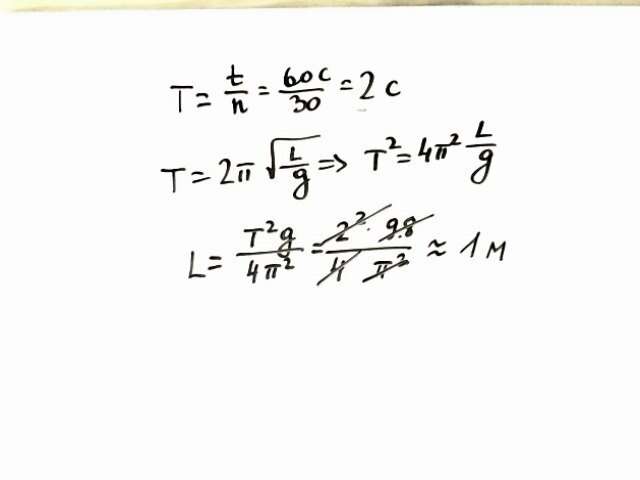 T = t/n = 60c/30 = 2 c
T = 2π √(L/g) => T² = 4π² L/g
L = T²g/4π² = 2² · 9.8/4 π² ≈ 1 м